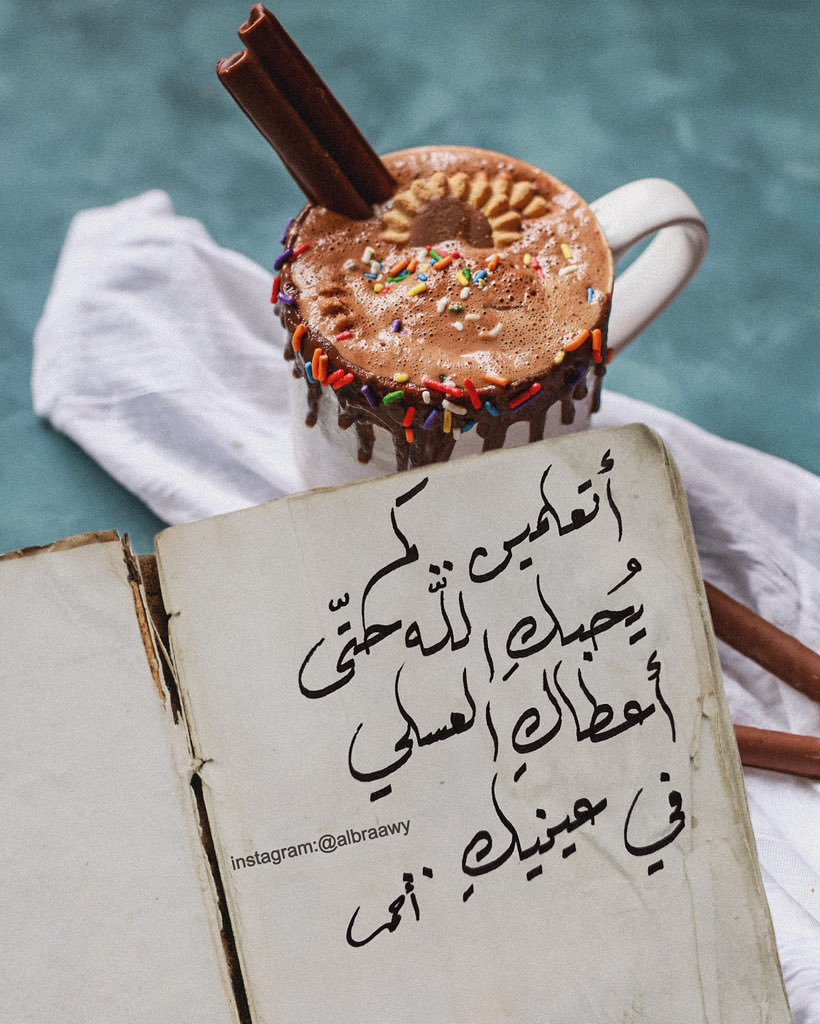 أتعلمين كم
يُحبكِ اللّه حتّى
أعطاكِ العسلي
في عينيكِ
instagram:@albraawy
أحمد